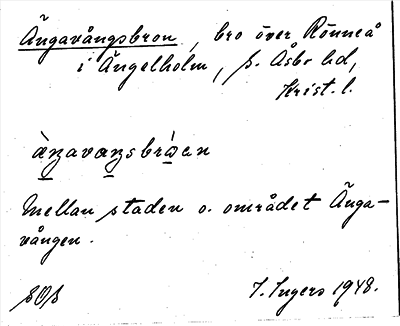 Ängavångsbron, bro över Rönneå
i Ängelholm, s. Åsbo hd,
Krist. l.
Mellan staden o. området Änga-
vången.
SOS
I. Ingers 1948.